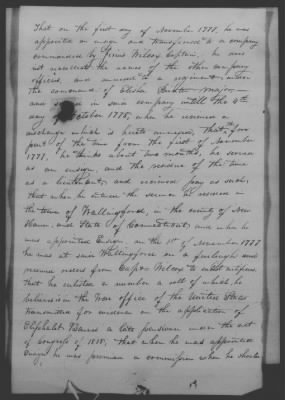 That on the first day of November 1777, he was
appointed an ensign and transferred to a company
commanded by Wilcox Captain, he does
not recollect the names of the other company
officers, and annexed to a regiment under
the command of Elisha major
and served in such company untill the 4th
day of October 1778, when he received a
discharge which is hereto annexed, that for
part of the time from the first of November
1777, he thinks about two months, he served
as an ensign, and the residue of the time
as a lieutenant, and received pay as such,
that when he entered the service he resided in
the town of Wallingford, in the county of New
Haven and State of Connecticut, and when he
was appointed Ensign on the 1st of November 1777
he was at said Wallingford on a furlough and
received orders from Capt Wilcox to enlist
that he enlisted a number a roll of which, he
believes in the War office of the United States
transmitted for evidence on the application of
Eliphalet a late pensioner under the act
of Congress of 1818, that when he was appointed
he was promised a commission when he should